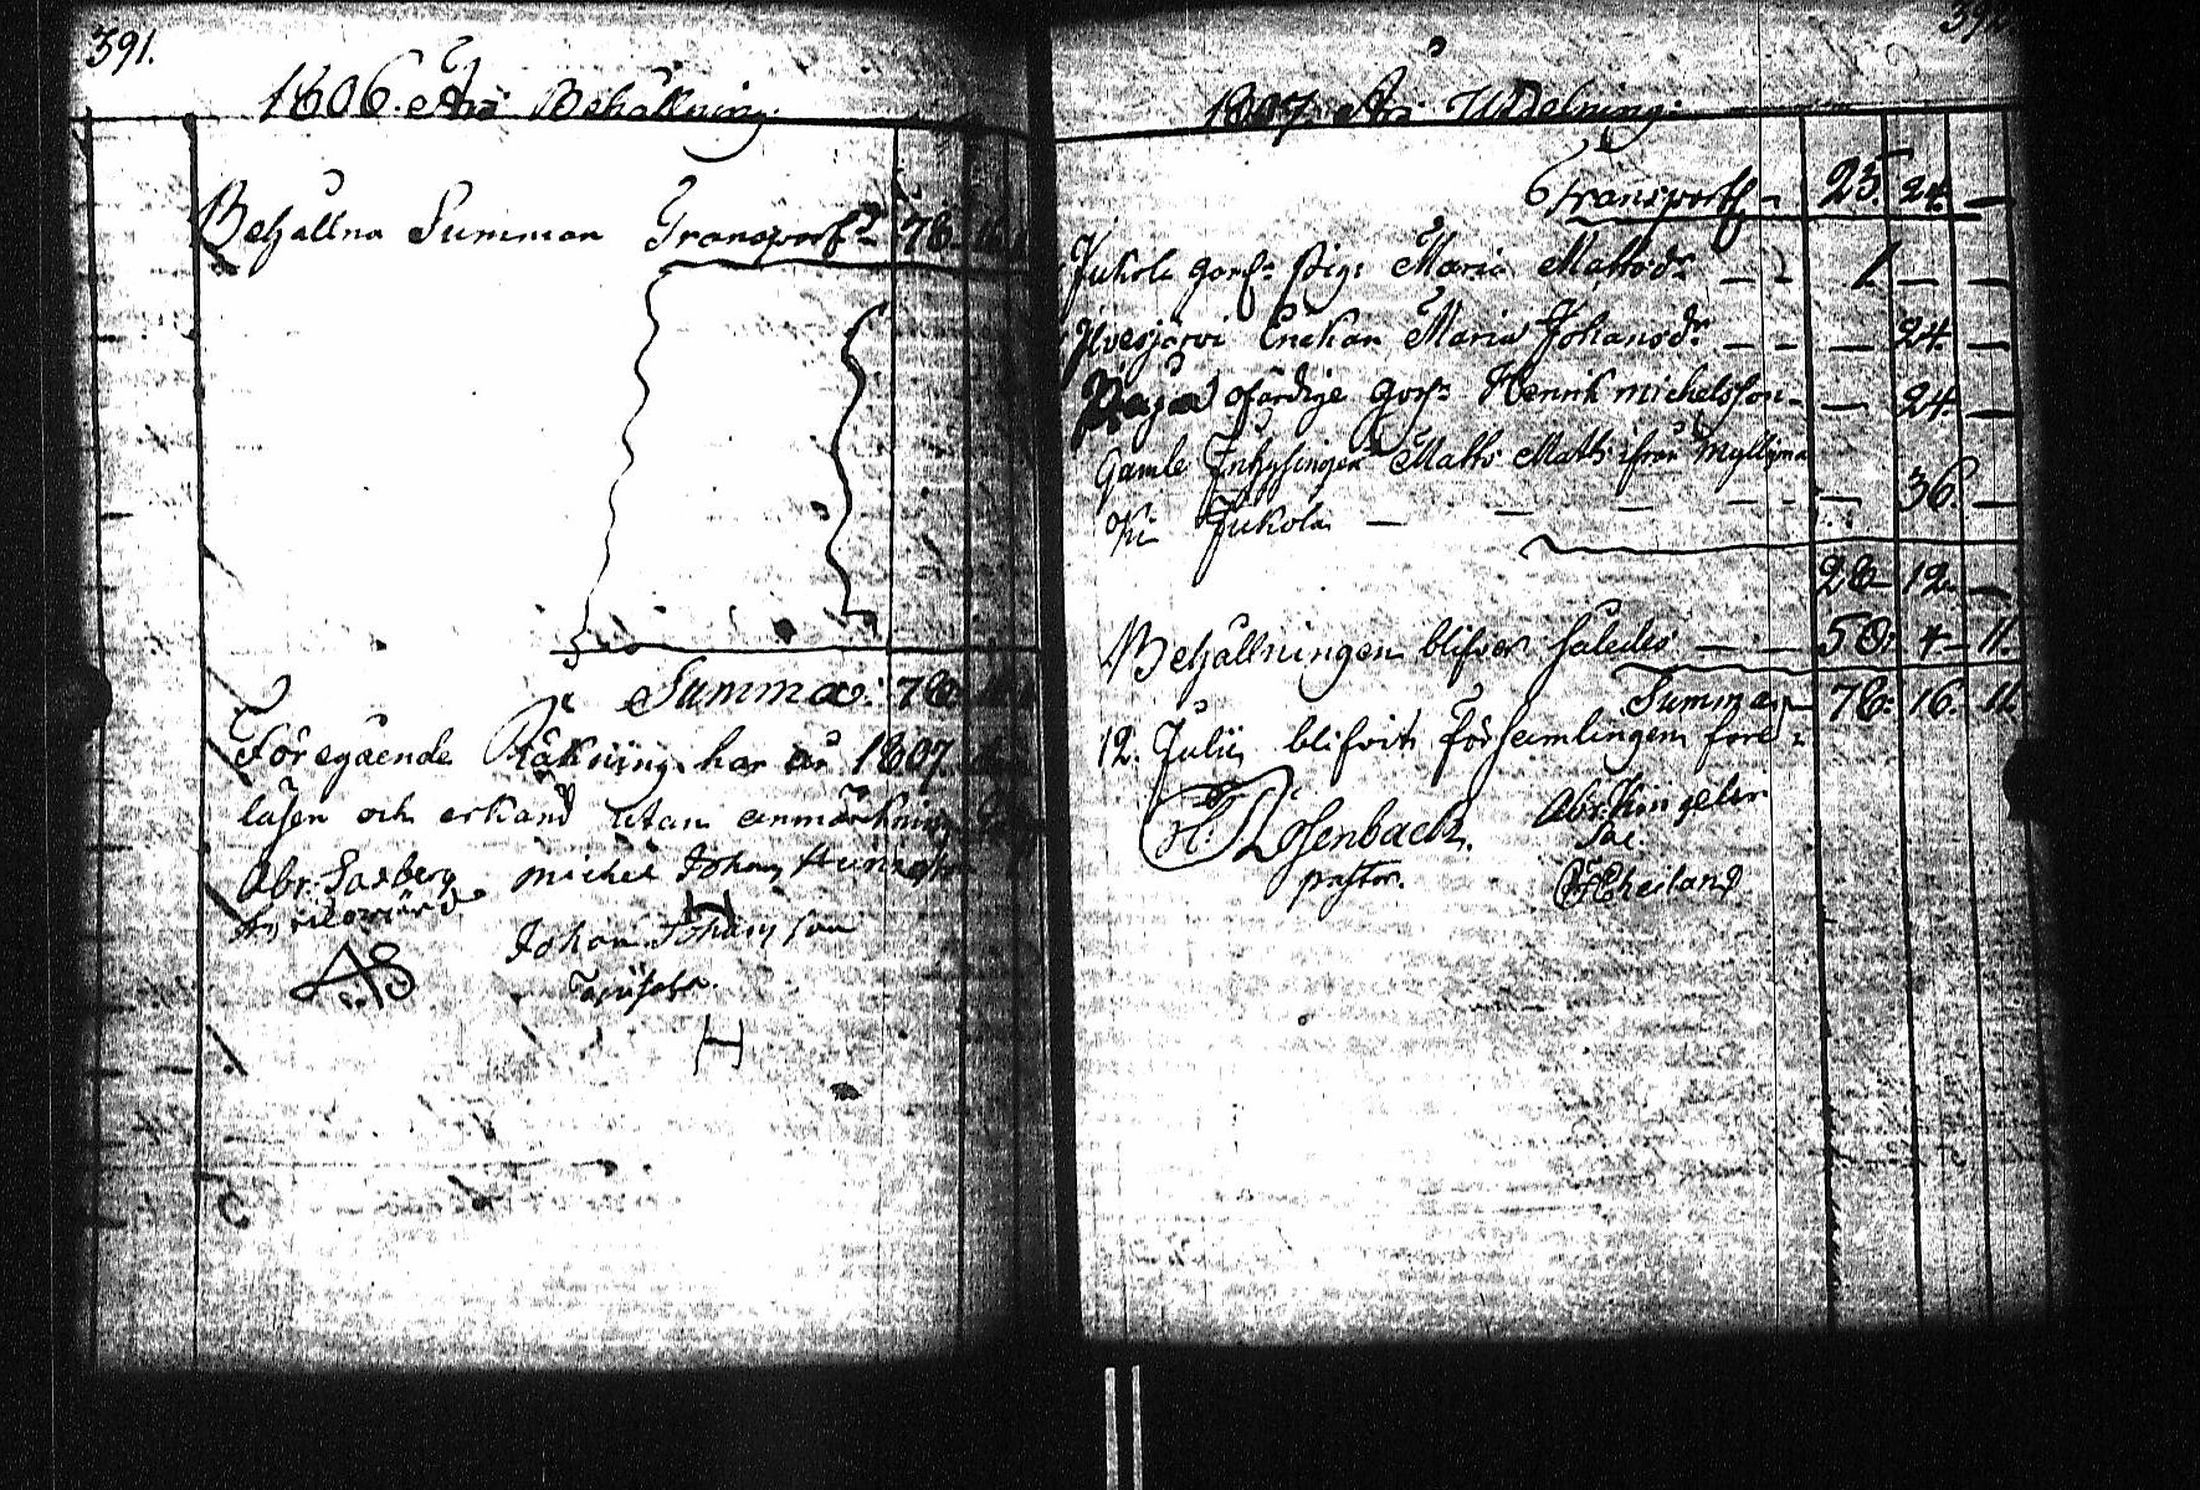 391.
1806. Års Behållning.
Behållna Summan Transport 78. 16. 11
Summa: 78. 16. 11
Föregående Räkning har år 1807.
läsen och erkänd utan anmärkning
Abr: Saxberg Michel Johans
H
Johan Johansson
AS
H
1807 Års Utdelning:
Transport 25. 24. —
Jukola gors: Pig: Maria Mattsdr — 1 — —
Ilvesjärvi Enckan Maria Johansdr — — — 24. —
ofärdige gos: Henrik Michelsson — — 24. —
Gamle Inhysingen Matts Matts: ifrån Myllyma
ki Jukola — — — — — 36. —
28 12. —
Behållningen blifver således — — 50. 4 — 11.
Summa — 78. 16. 11.
12. Julii blifvit församlingen före
H: Rosenback.
pastor.